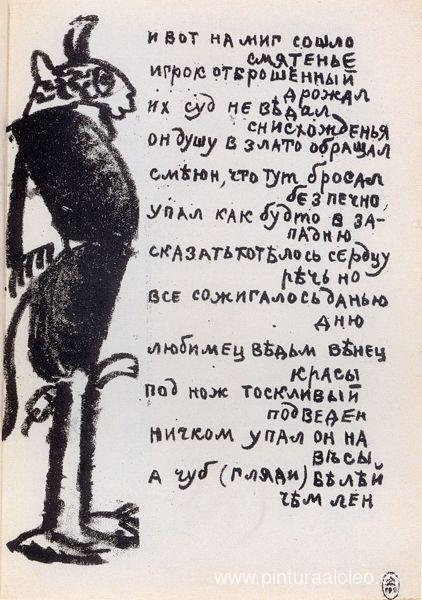 И ВОТ НА МИГ СОШЛО
СМЯТЕНЬЕ
ИГРОК ОТБРОШЕННЫЙ
ДРОЖАЛ
ИХ СУД НЕ ВѢДАЛ
СНИСХОЖДЕНЬЯ
ОН ДУШУ В ЗЛАТО ОБРАЩАЛ
СМѢЮН, ЧТО ТУТ БРОСАЛ
БЕЗПЕЧНО,
УПАЛ КАК БУДТО В ЗА-
ПАДНЮ
СКАЗАТЬ ХОТѢЛОСЬ СЕРДЦУ
РѢЧЬ НО
ВСЕ СОЖИГАЛОСЬ ДАНЬЮ
ДНЮ
ЛЮБИМЕЦ ВѢДЬМ ВѢНЕЦ
КРАСЫ
ПОД НОЖ ТОСКЛИВЫЙ
ПОДВЕДЕН
НИЧКОМ УПАЛ ОН НА
ВѢСЫ
А ЧУБ (ГЛЯДИ) БѢЛѢЙ
ЧѢМ ЛЕН
www.pinturaaloleo.es